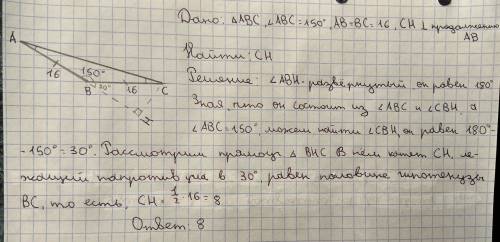 Дано: △ABC, ∠ABC = 150°, AB = BC = 16, CH ⊥ продолжению AB
Найти: CH
Решение: ∠ABH - развёрнутый, он равен 180°
Зная, что он состоит из ∠ABC и ∠CBH, а
∠ABC = 150°, можем найти ∠CBH, он равен 180° -
- 150° = 30°. Рассмотрим прямоуг △ BHC В нём катет CH, ле-
жащий напротив угла в 30°, равен половине гипотенузы
BC, то есть, CH = 1/2 · 16 = 8
Ответ: 8
A
16
150°
B
30°
16
C
H